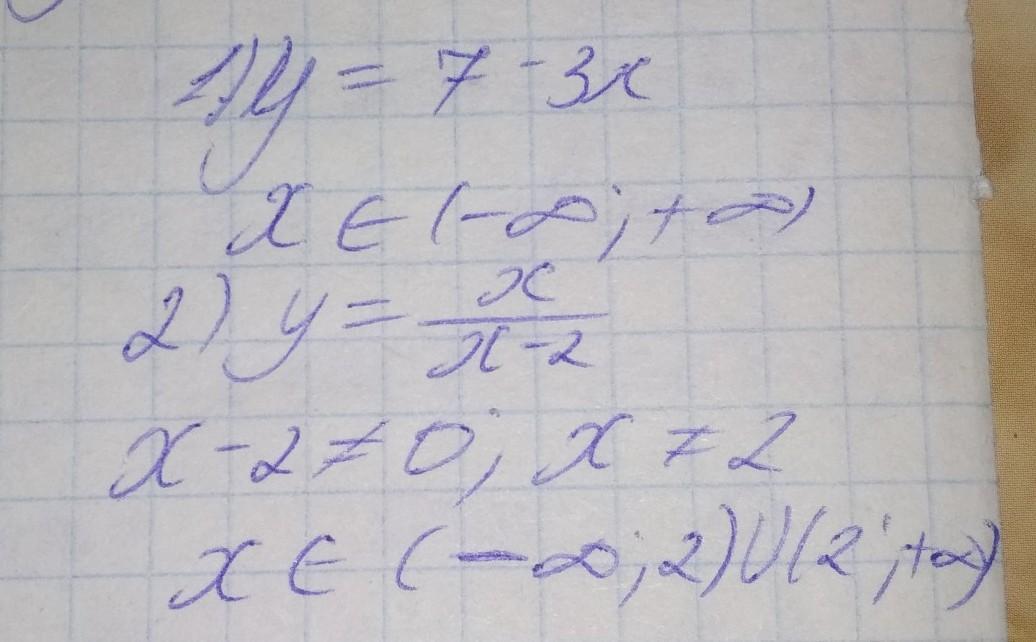 1) y = 7 - 3x
x ∈ (-∞; +∞)
2) y = x/(x-2)
x - 2 ≠ 0; x ≠ 2
x ∈ (-∞; 2) ∪ (2; +∞)